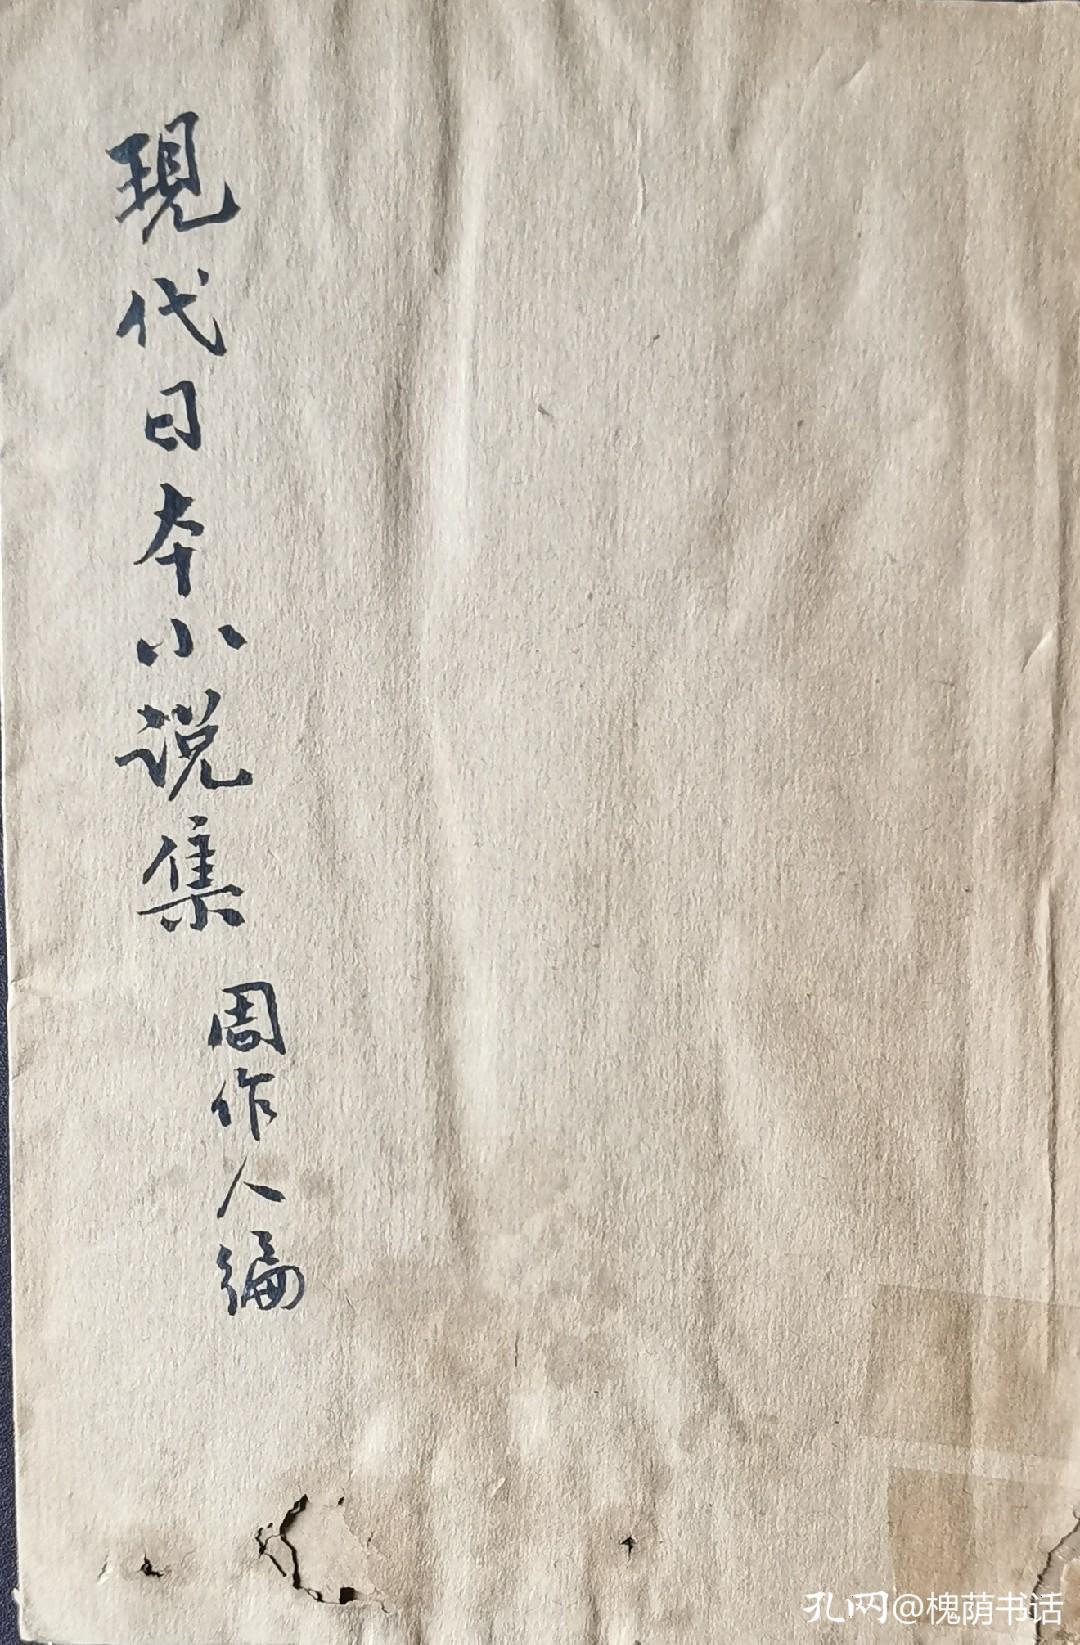 現代日本小说集
周作人編
孔网@槐荫书话